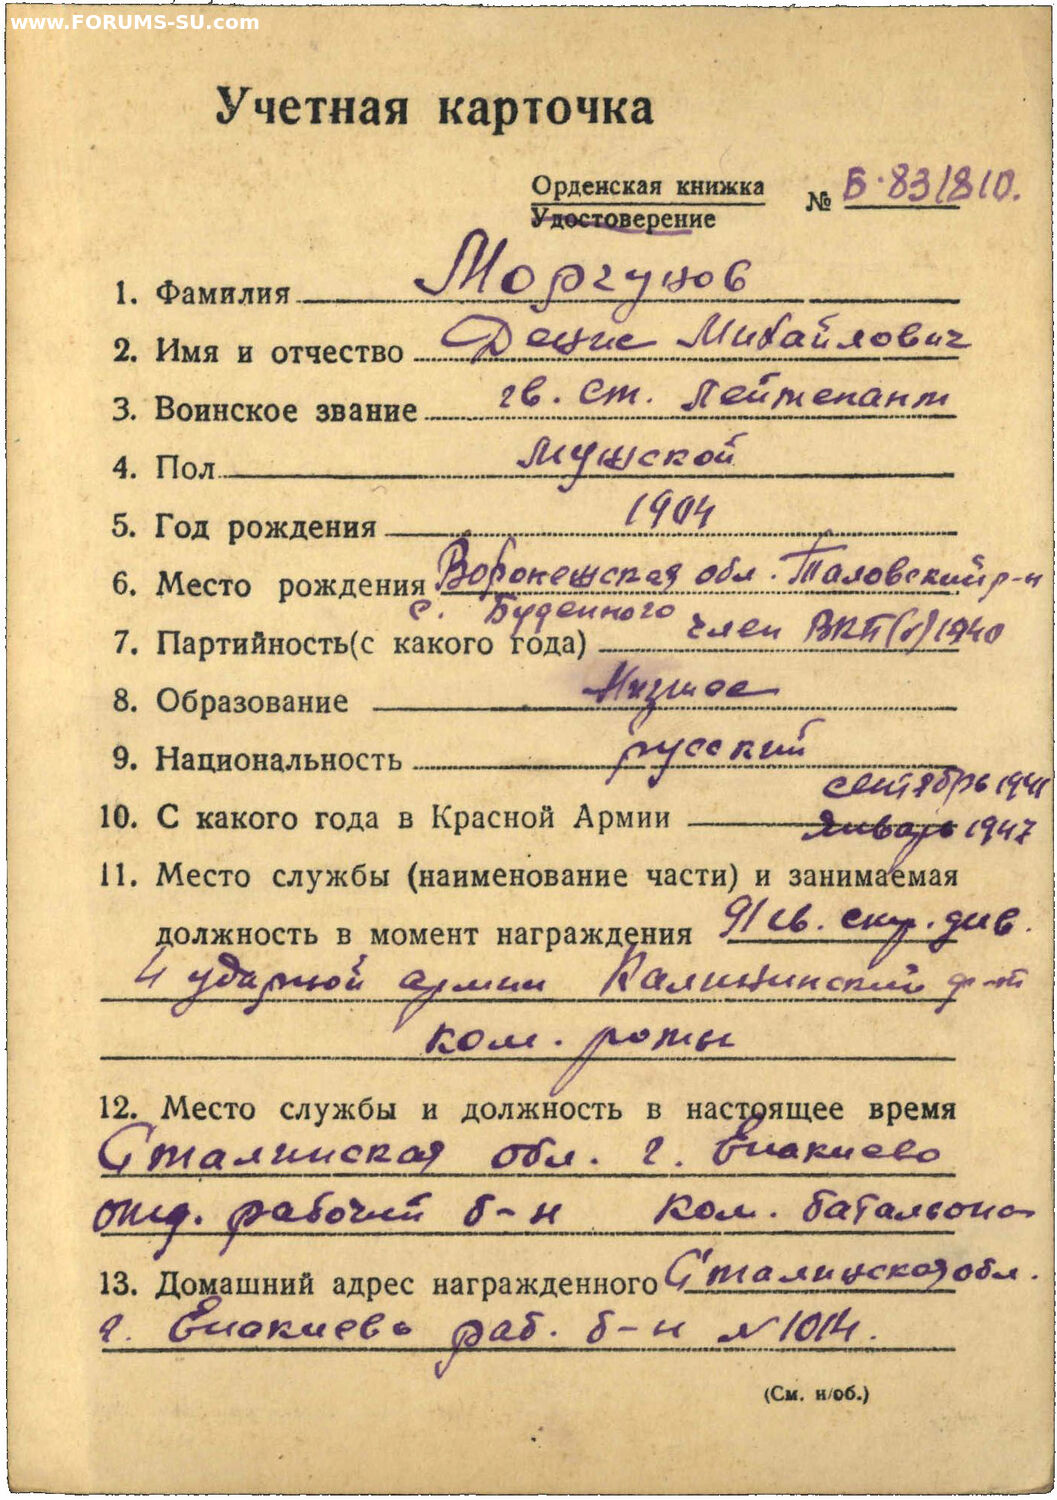 www.FORUMS-SU.com
Учетная карточка
Орденская книжка № Б·831810.
Удостоверение
1. Фамилия Моргунов
2. Имя и отчество Денис Михайлович
3. Воинское звание гв. ст. лейтенант
4. Пол Мужской
5. Год рождения 1904
6. Место рождения Воронежская обл. Таловский р-н
с. Буденного
7. Партийность(с какого года) член ВКП(б) 1940
8. Образование Низшее
9. Национальность русский
сентябрь 1941
10. С какого года в Красной Армии Январь 1947
11. Место службы (наименование части) и занимаемая
должность в момент награждения 91 гв. стр. див.
4 ударной армии Калининский ф-т
ком. роты
12. Место службы и должность в настоящее время
Сталинская обл. г. Енакиево
отд. рабочий б-н ком. батальона
13. Домашний адрес награжденного Сталинская обл.
г. Енакиево раб. б-н №1014.
(См. н/об.)